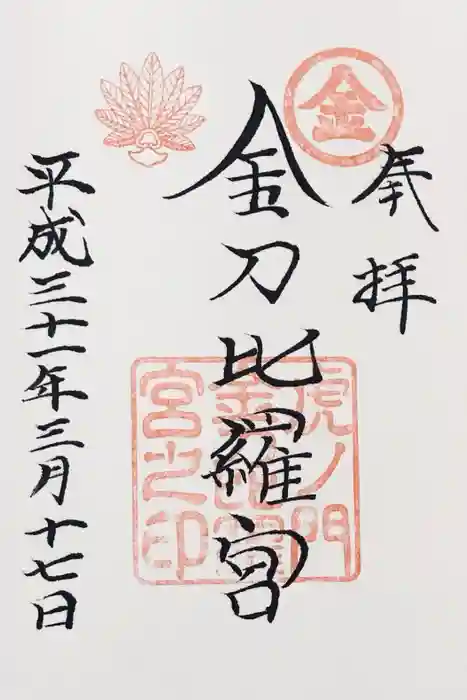 金
奉拝
金刀比羅宮
虎ノ門
金
宮之印
平成三十一年三月十七日